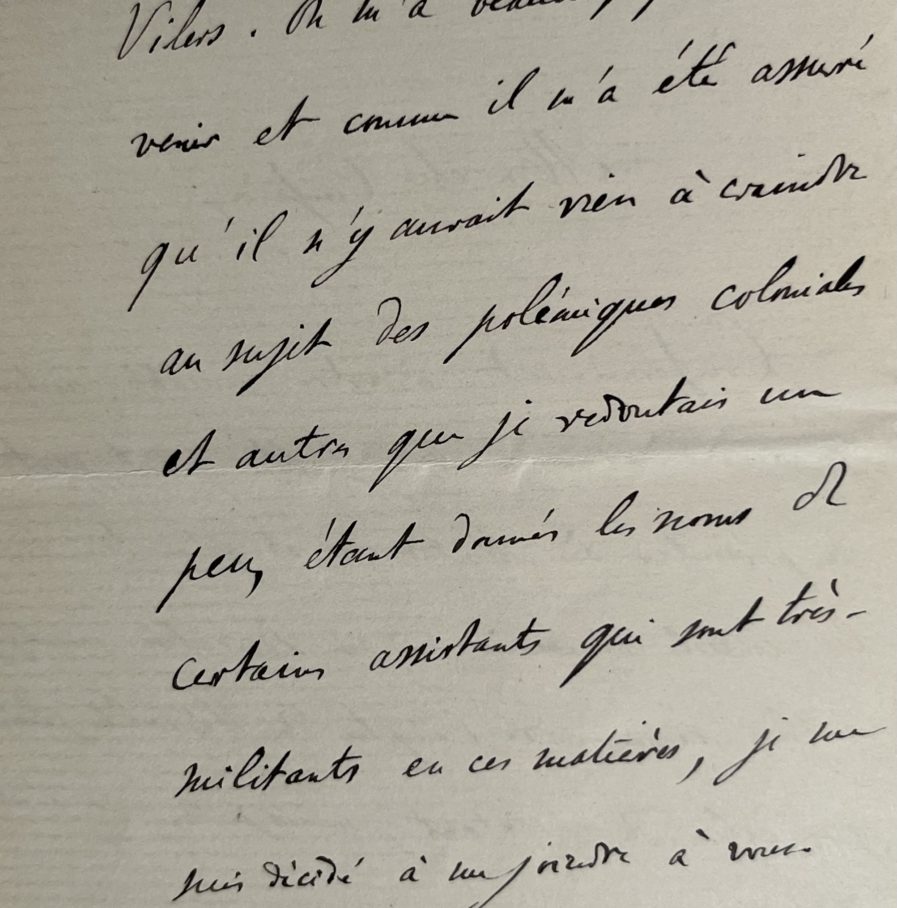 Vilers. On m'a
venir et comme il m'a été assuré
qu'il n'y aurait rien à craindre
au sujet des polémiques coloniales
et autres que je redoutais un
peu, étant donnés les noms de
certains assistants qui sont très-
militants en ces matières, je me
suis décidé à me joindre à vous.